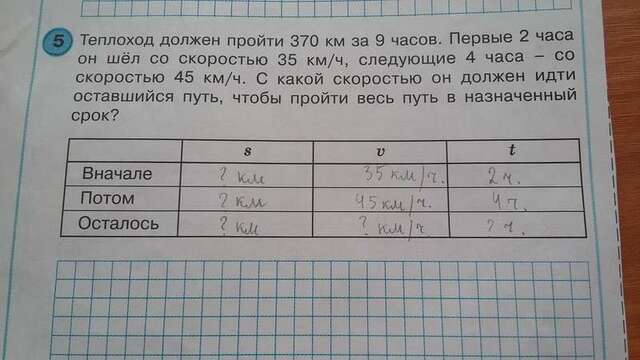 5 Теплоход должен пройти 370 км за 9 часов. Первые 2 часа
он шёл со скоростью 35 км/ч, следующие 4 часа – со
скоростью 45 км/ч. С какой скоростью он должен идти
оставшийся путь, чтобы пройти весь путь в назначенный
срок?
s v t
Вначале ? км 35 км/ч. 2 ч.
Потом ? км 45 км/ч. 4 ч.
Осталось ? км ? км/ч. ? ч.